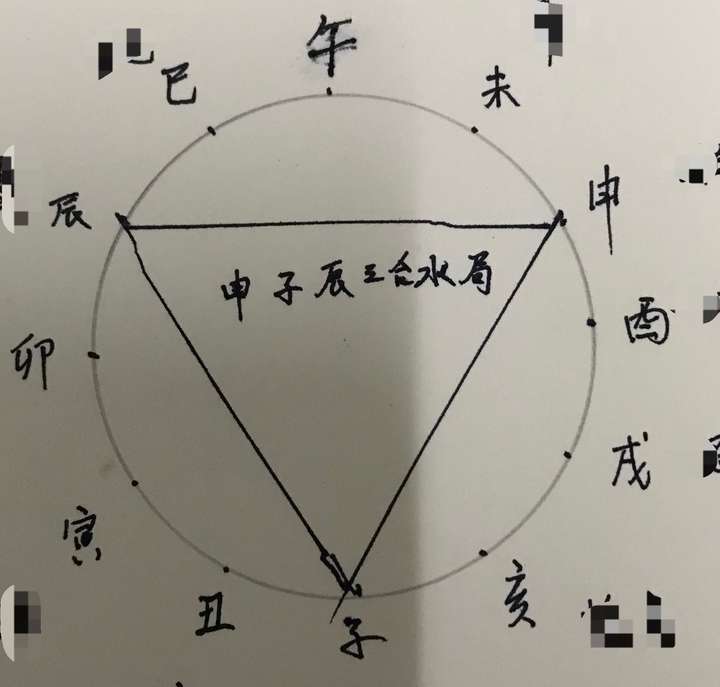 午
巳
未
辰
申
申子辰三合水局
卯
酉
戌
寅
亥
丑
子